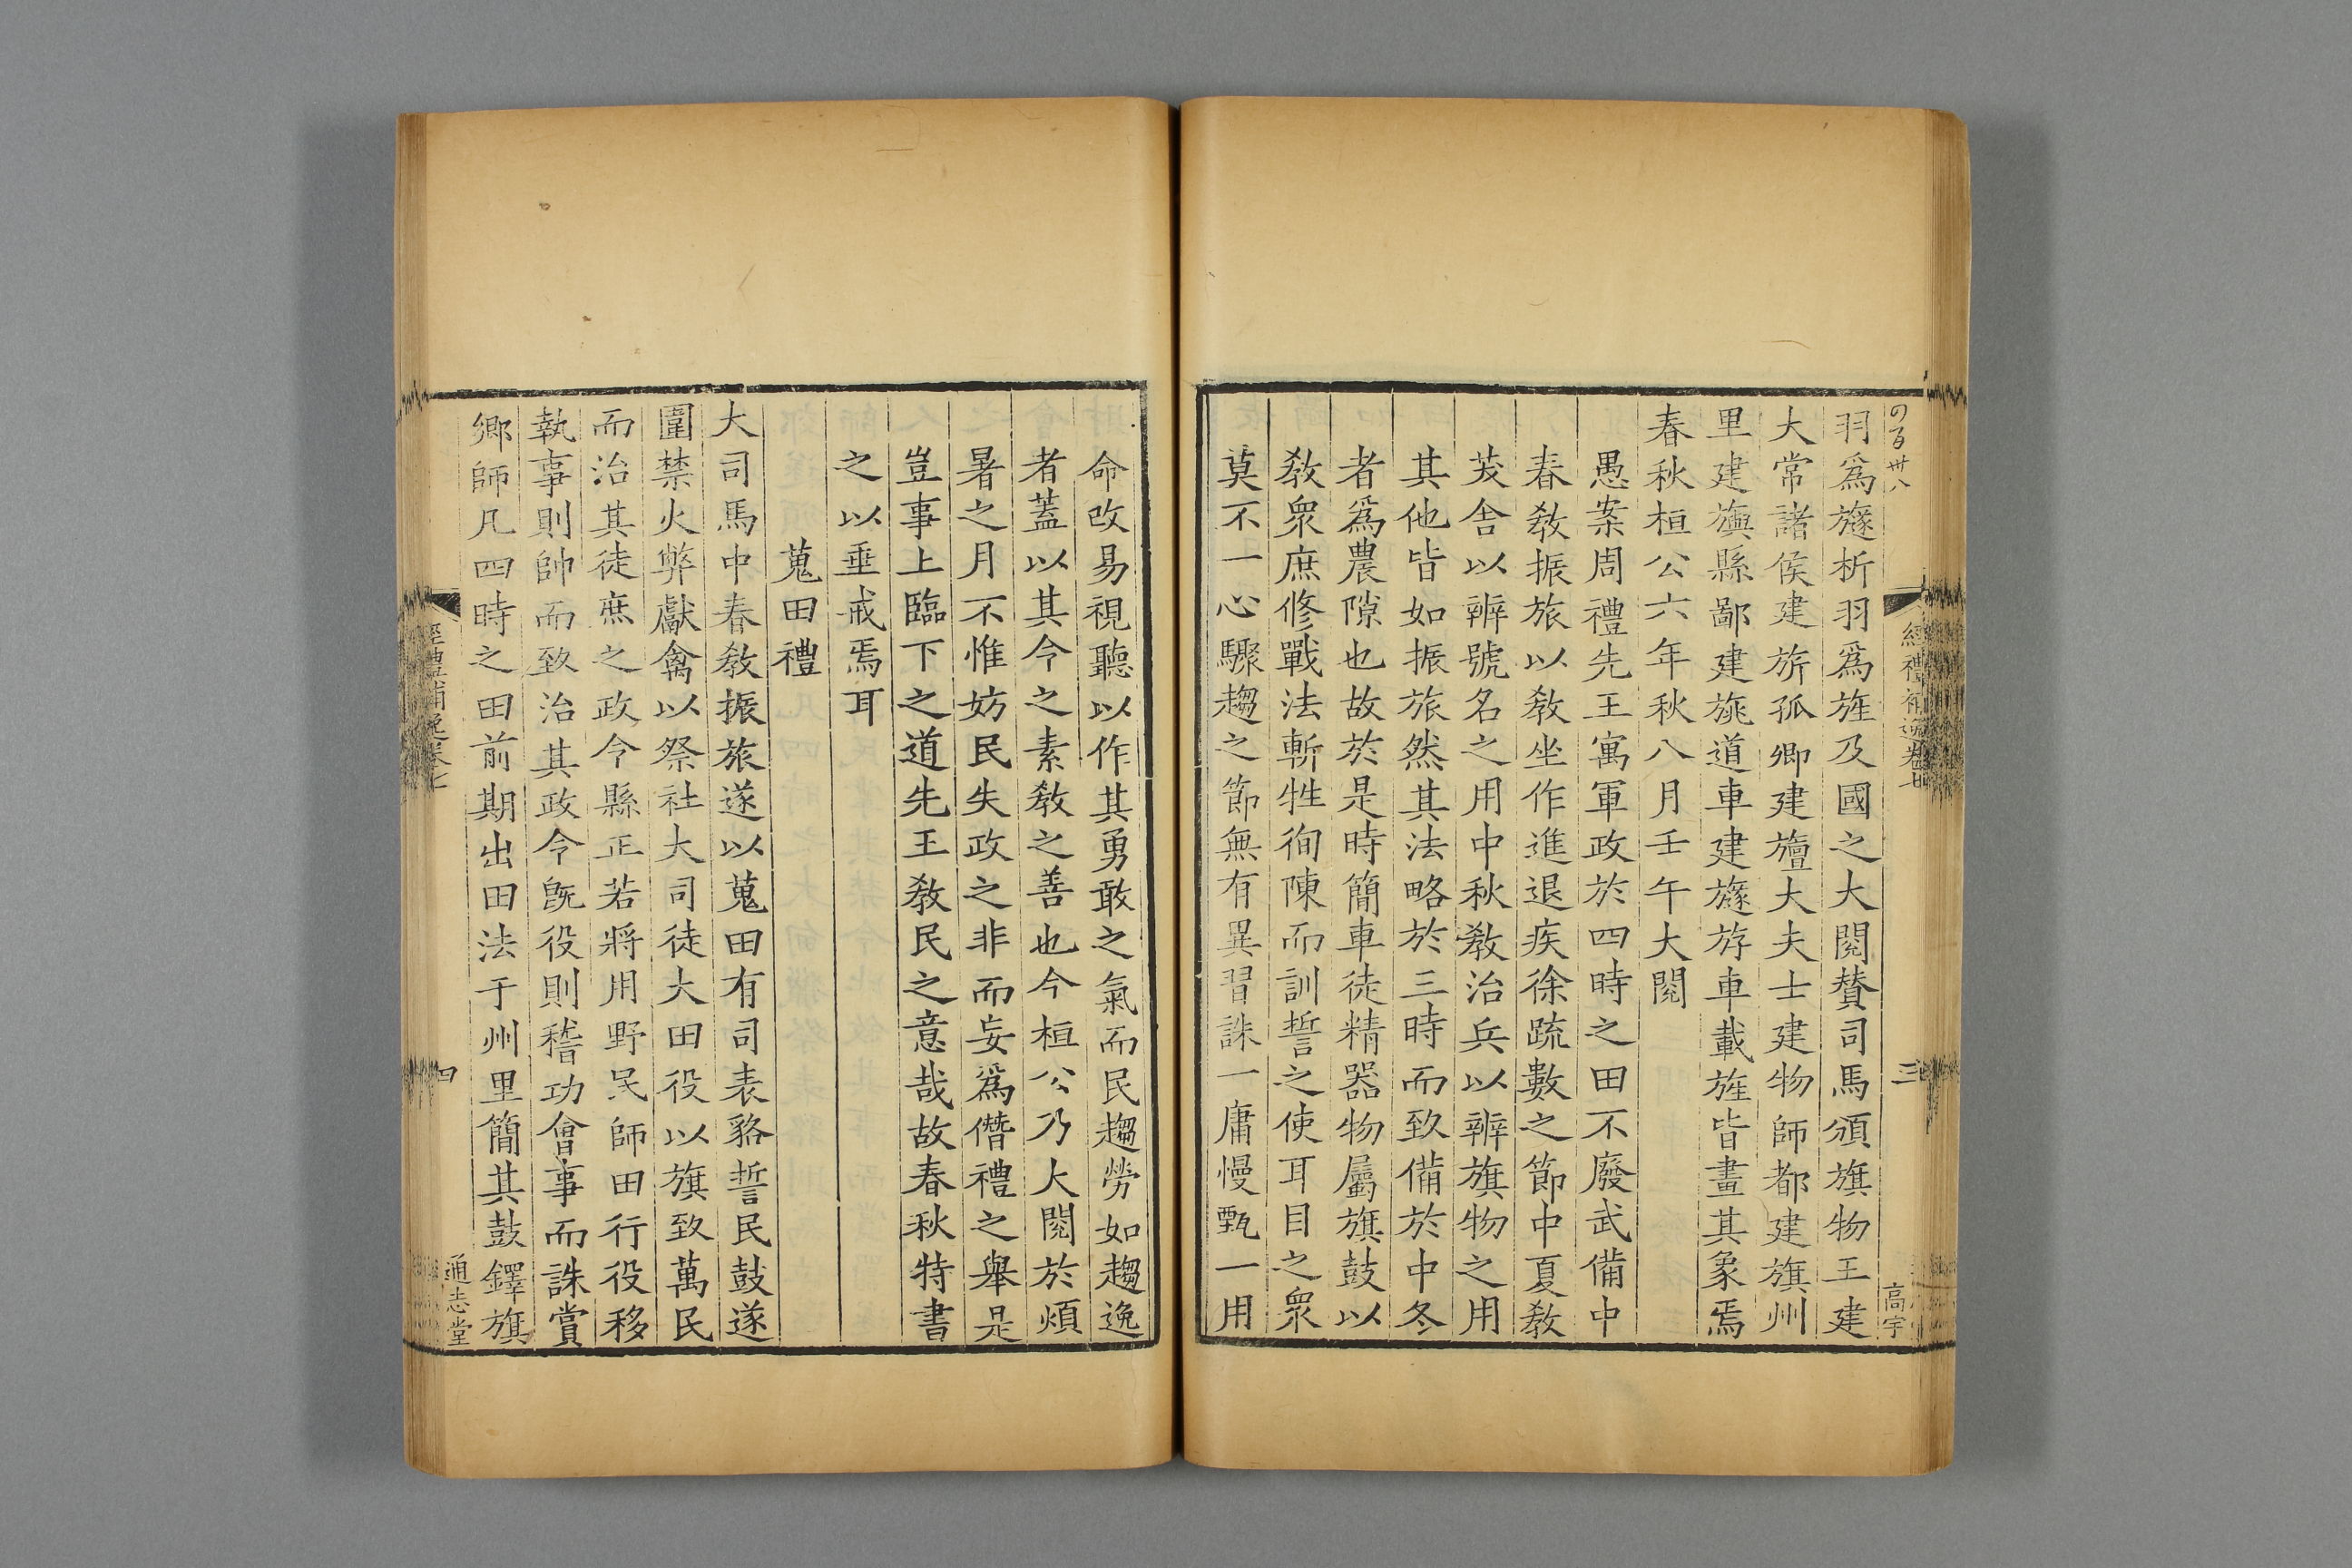 羽爲旞析羽爲旌及國之大閱賛司馬頒旗物王建
大常諸侯建旂孤卿建旜大夫士建物師都建旗州
里建旟縣鄙建旐道車建旞斿車載旌皆畫其象焉
春秋桓公六年秋八月壬午大閱
愚案周禮先王寓軍政於四時之田不廢武備中
春敎振旅以敎坐作進退疾徐疏數之節中夏敎
茇舍以辨號名之用中秋敎治兵以辨旗物之用
其他皆如振旅然其法略於三時而致備於中冬
者爲農隙也故於是時簡車徒精器物屬旗鼓以
敎衆庶修戰法斬牲徇陳而訓誓之使耳目之衆
莫不一心驟趨之節無有異習誅一庸慢甄一用
經禮補逸卷七
三
高宇
命改易視聽以作其勇敢之氣而民趨勞如趨逸
者蓋以其今之素敎之善也今桓公乃大閱於煩
暑之月不惟妨民失政之非而妄爲僭禮之舉是
豈事上臨下之道先王敎民之意哉故春秋特書
之以垂戒焉耳
蒐田禮
大司馬中春敎振旅遂以蒐田有司表貉誓民鼓遂
圍禁火弊獻禽以祭社大司徒大田役以旗致萬民
而治其徒庶之政令縣正若將用野民師田行役移
執事則帥而致治其政令旣役則稽功會事而誅賞
鄉師凡四時之田前期出田法于州里簡其鼓鐸旗
經禮補逸卷七
四
通志堂